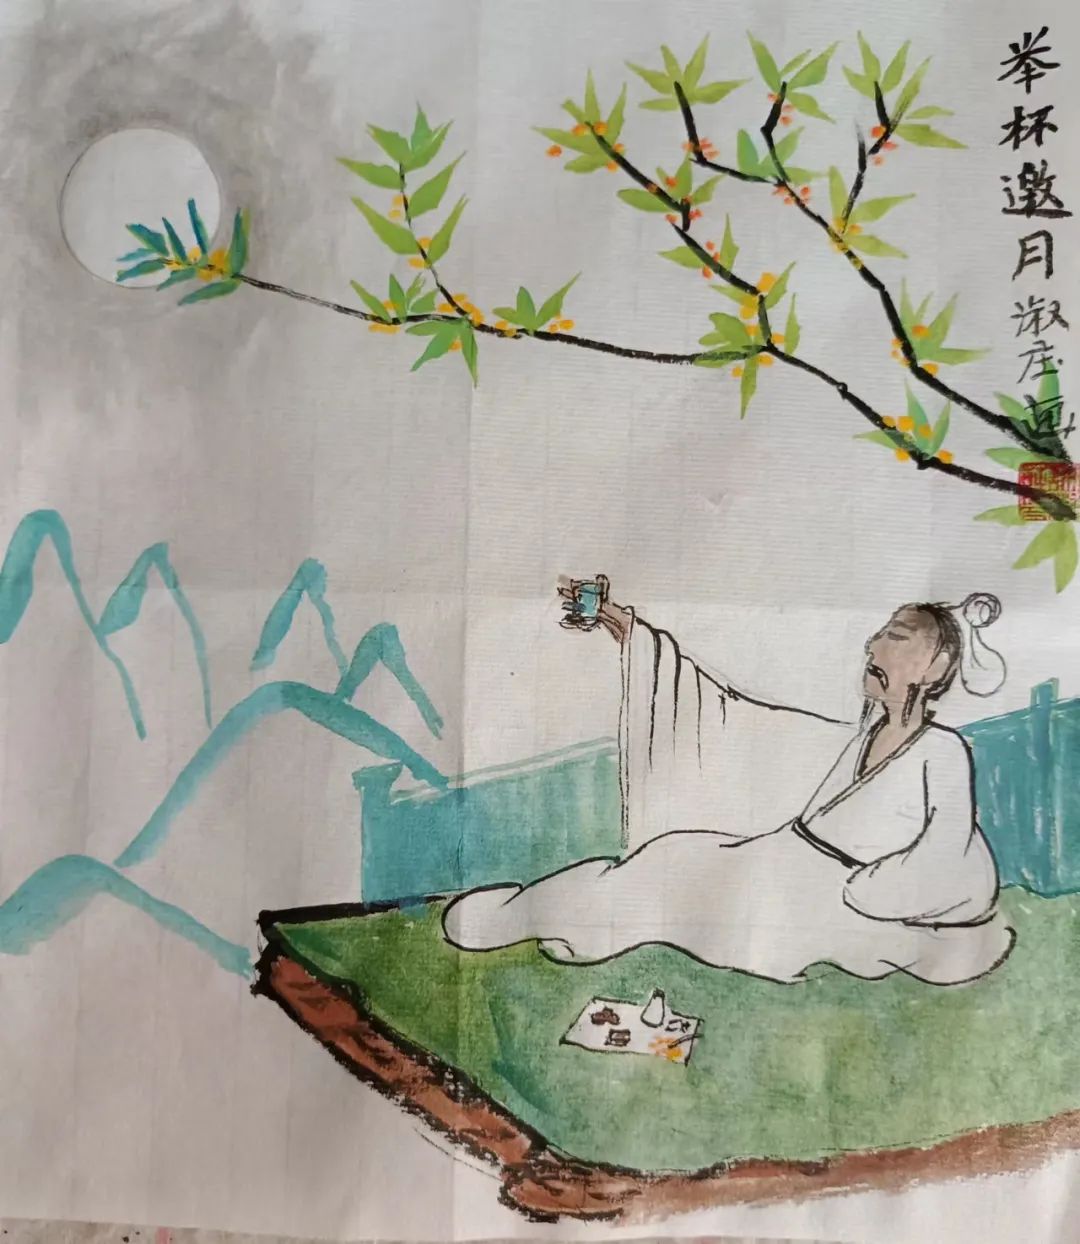 举杯邀月 淑庄画